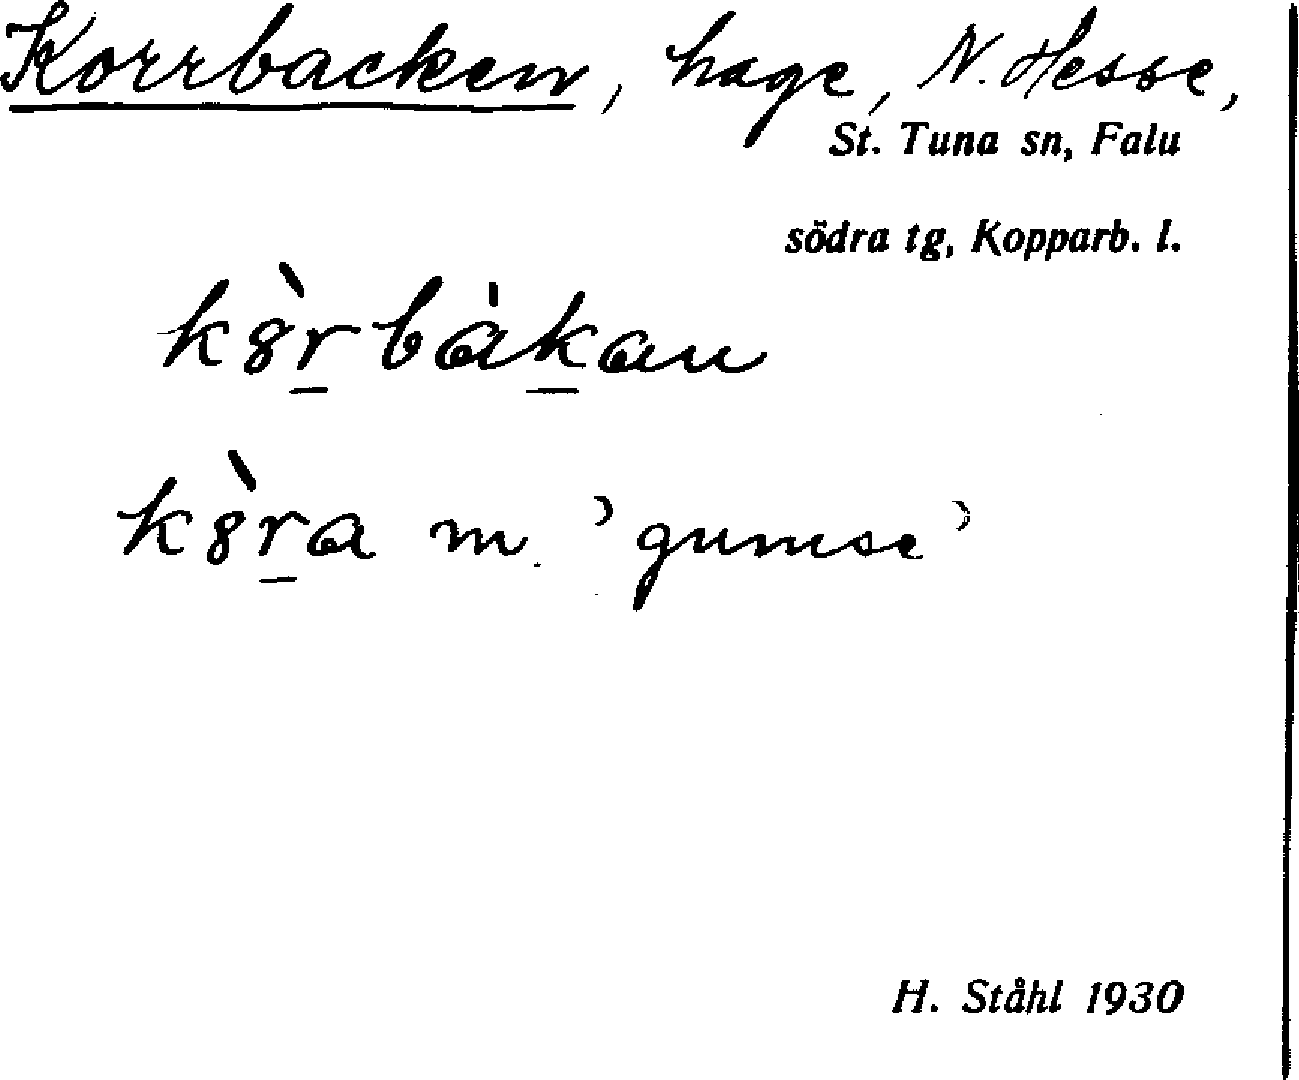 Korrbacken, hage, N. Hesse,
St. Tuna sn, Falu
södra tg, Kopparb. l.
k8̀r̲bàk̲an
k8̀r̲a m. 'gumse'
H. Ståhl 1930